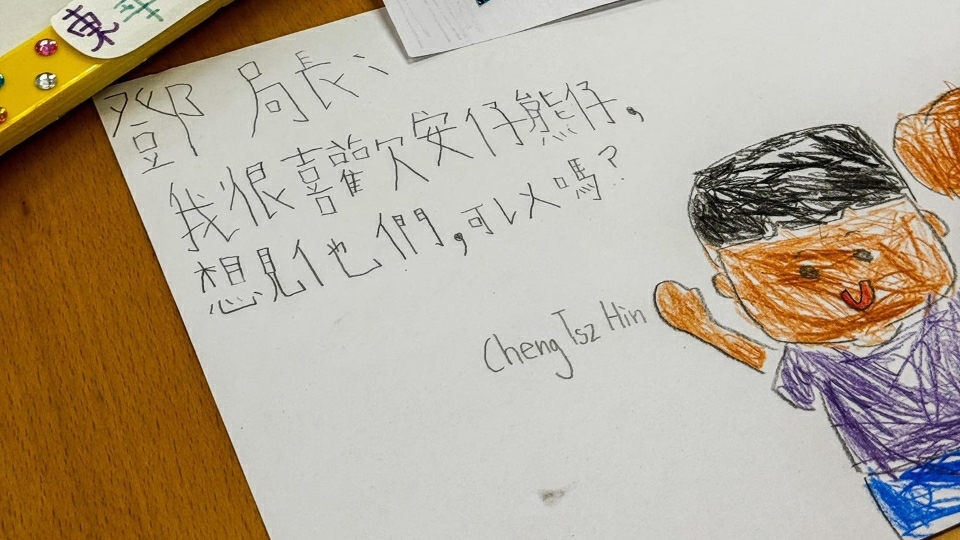 東華
鄧局長:
我很喜歡安仔熊仔,
想見他們,可以嗎?
Cheng Tsz Hin